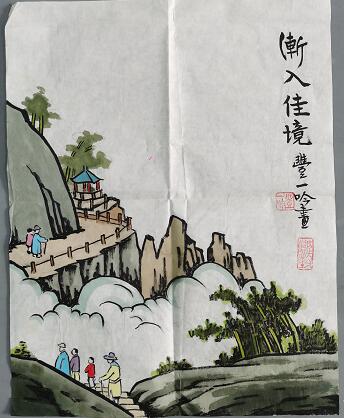 漸入佳境
豐一吟畫